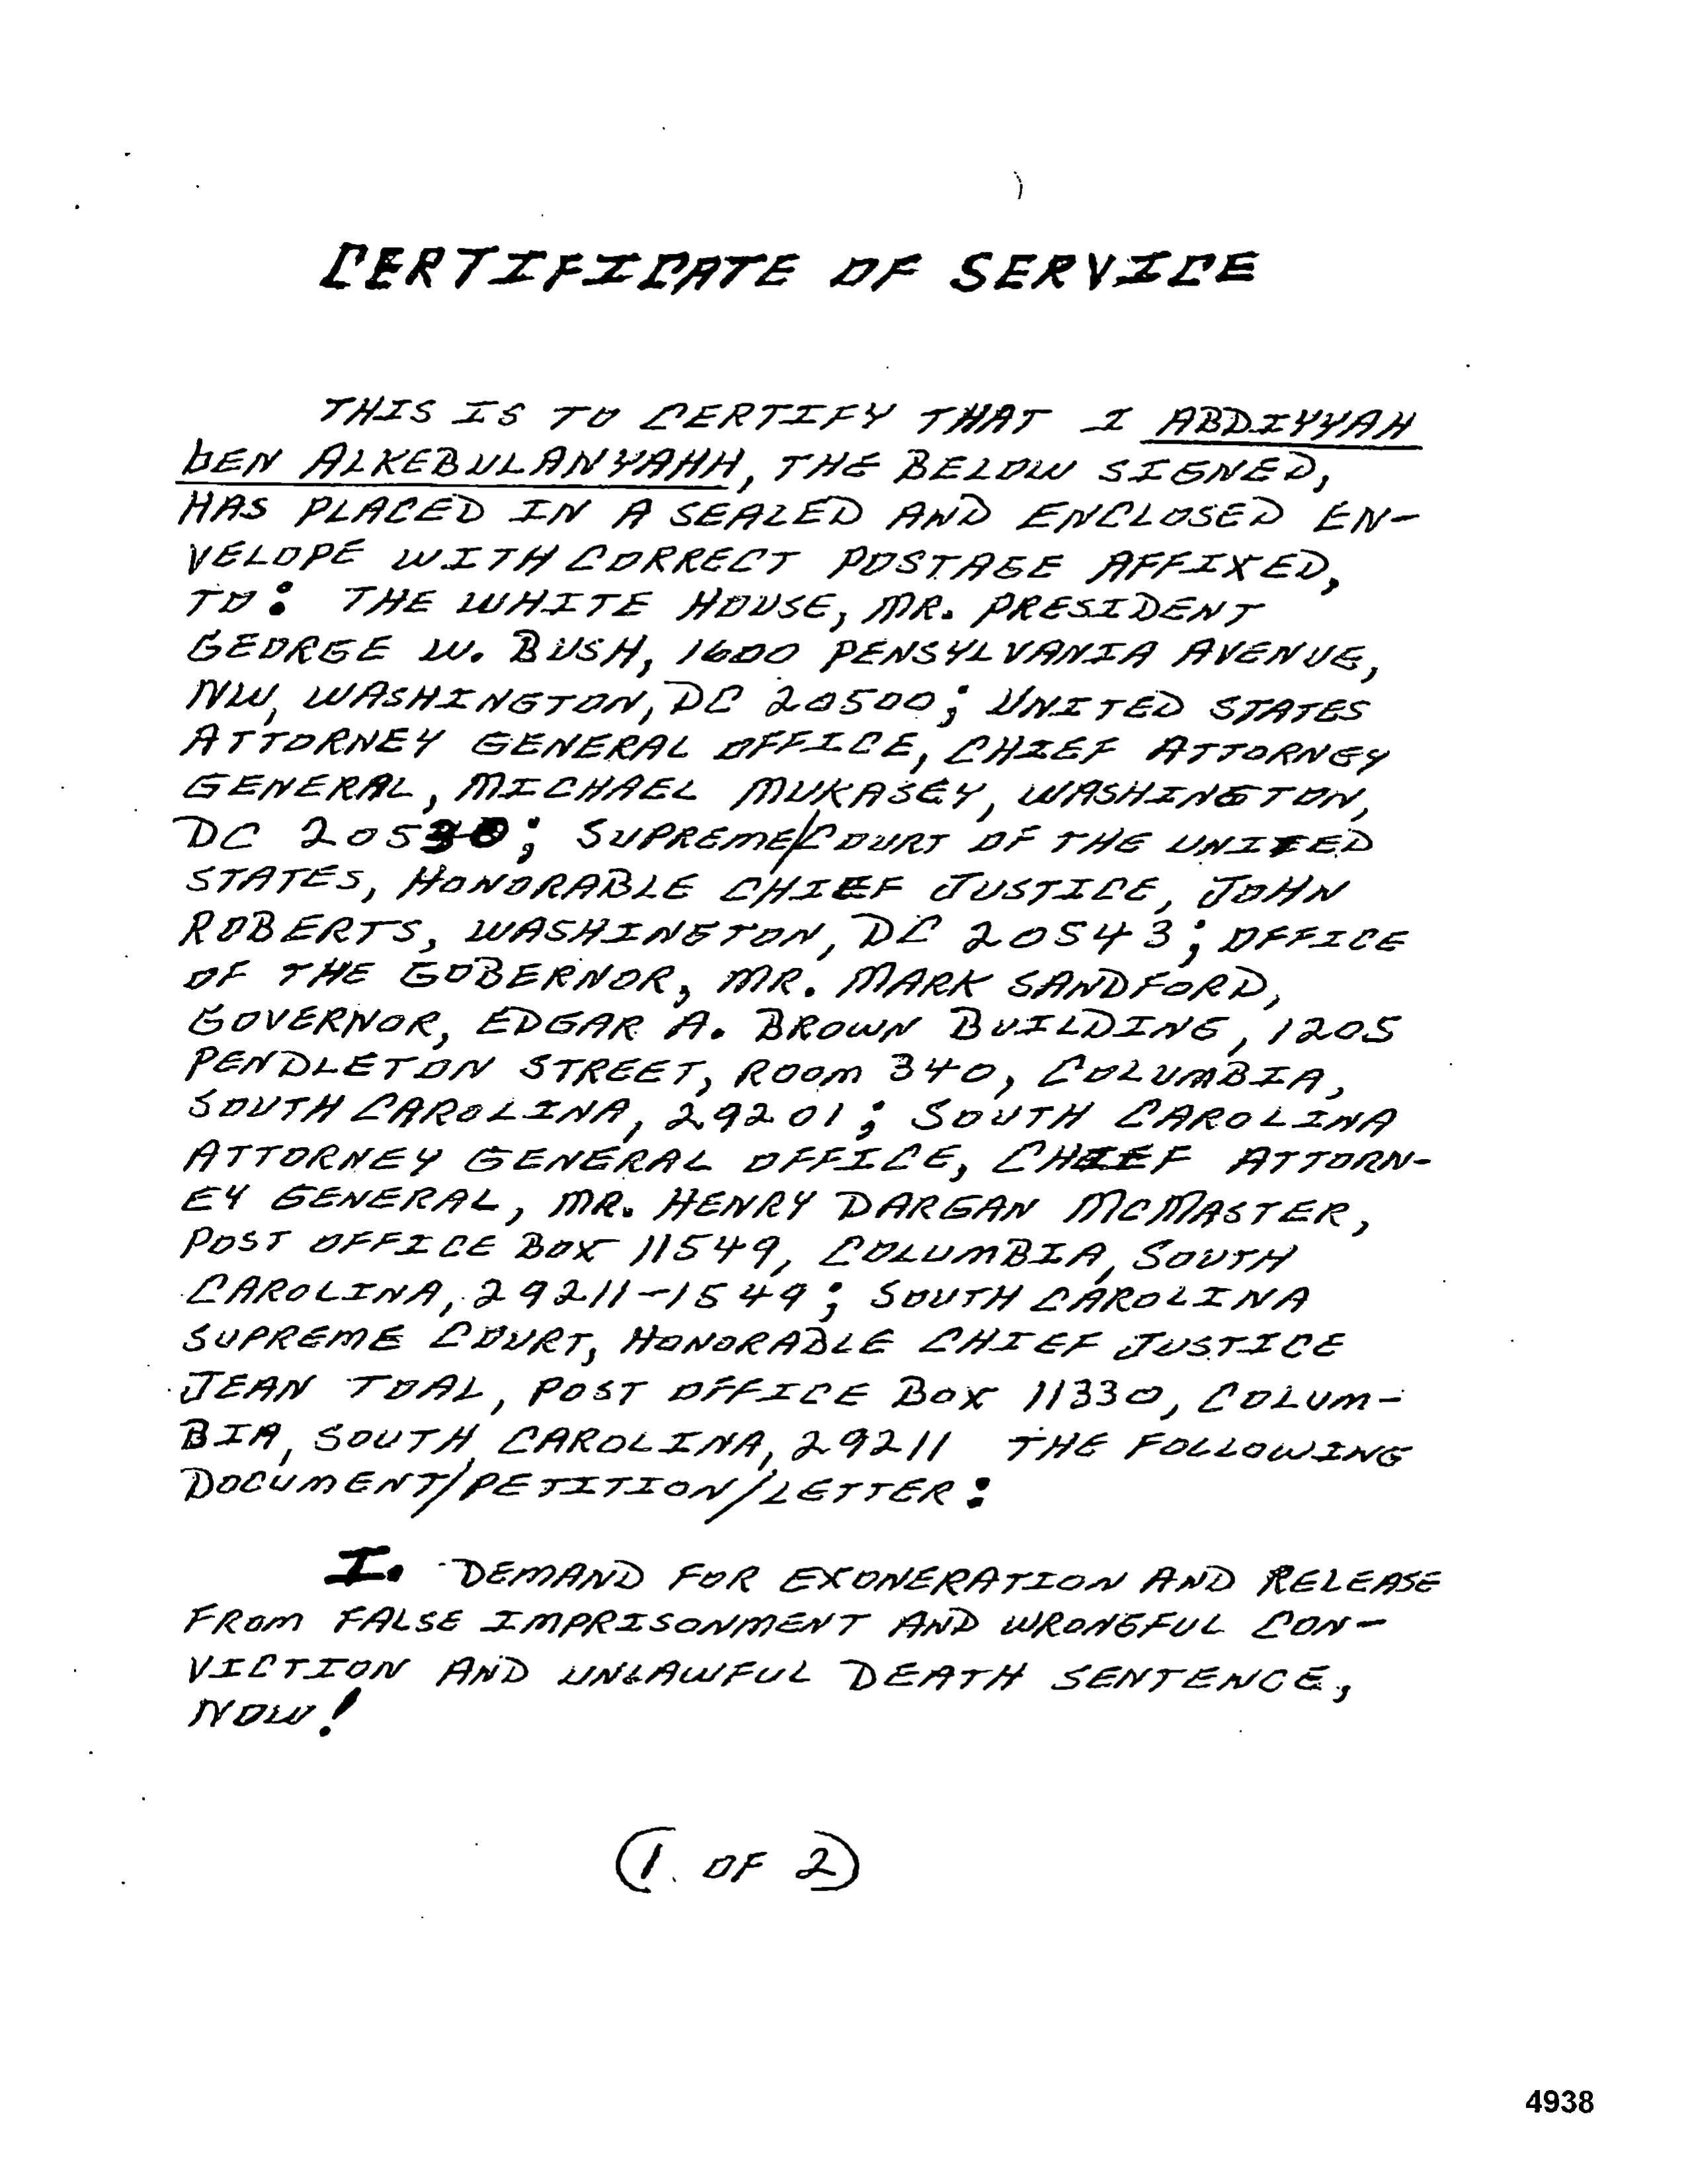 CERTIFICATE OF SERVICE
THIS IS TO CERTIFY THAT I ABDIYYAH
bEN ALKEBULANYAHH, THE BELOW SIGNED,
HAS PLACED IN A SEALED AND ENCLOSED EN-
VELOPE WITH CORRECT POSTAGE AFFIXED,
TO: THE WHITE HOUSE, MR. PRESIDENT
GEORGE W. BUSH, 1600 PENSYLVANIA AVENUE,
NW, WASHINGTON, DC 20500; UNITED STATES
ATTORNEY GENERAL OFFICE, CHIEF ATTORNEY
GENERAL, MICHAEL MUKASEY, WASHINGTON,
DC 20530; SUPREME/COURT OF THE UNITED
STATES, HONORABLE CHIEF JUSTICE, JOHN
ROBERTS, WASHINGTON, DC 20543; OFFICE
OF THE GOBERNOR, MR. MARK SANDFORD,
GOVERNOR, EDGAR A. BROWN BUILDING, 1205
PENDLETON STREET, ROOM 340, COLUMBIA,
SOUTH CAROLINA, 29201; SOUTH CAROLINA
ATTORNEY GENERAL OFFICE, CHIEF ATTORN-
EY GENERAL, MR. HENRY DARGAN MCMASTER,
POST OFFICE BOX 11549, COLUMBIA, SOUTH
CAROLINA, 29211-1549; SOUTH CAROLINA
SUPREME COURT, HONORABLE CHIEF JUSTICE
JEAN TOAL, POST OFFICE BOX 11330, COLUM-
BIA, SOUTH CAROLINA, 29211 THE FOLLOWING
DOCUMENT/PETITION/LETTER:
I. DEMAND FOR EXONERATION AND RELEASE
FROM FALSE IMPRISONMENT AND WRONGFUL CON-
VICTION AND UNLAWFUL DEATH SENTENCE,
NOW!
(1 OF 2)
4938